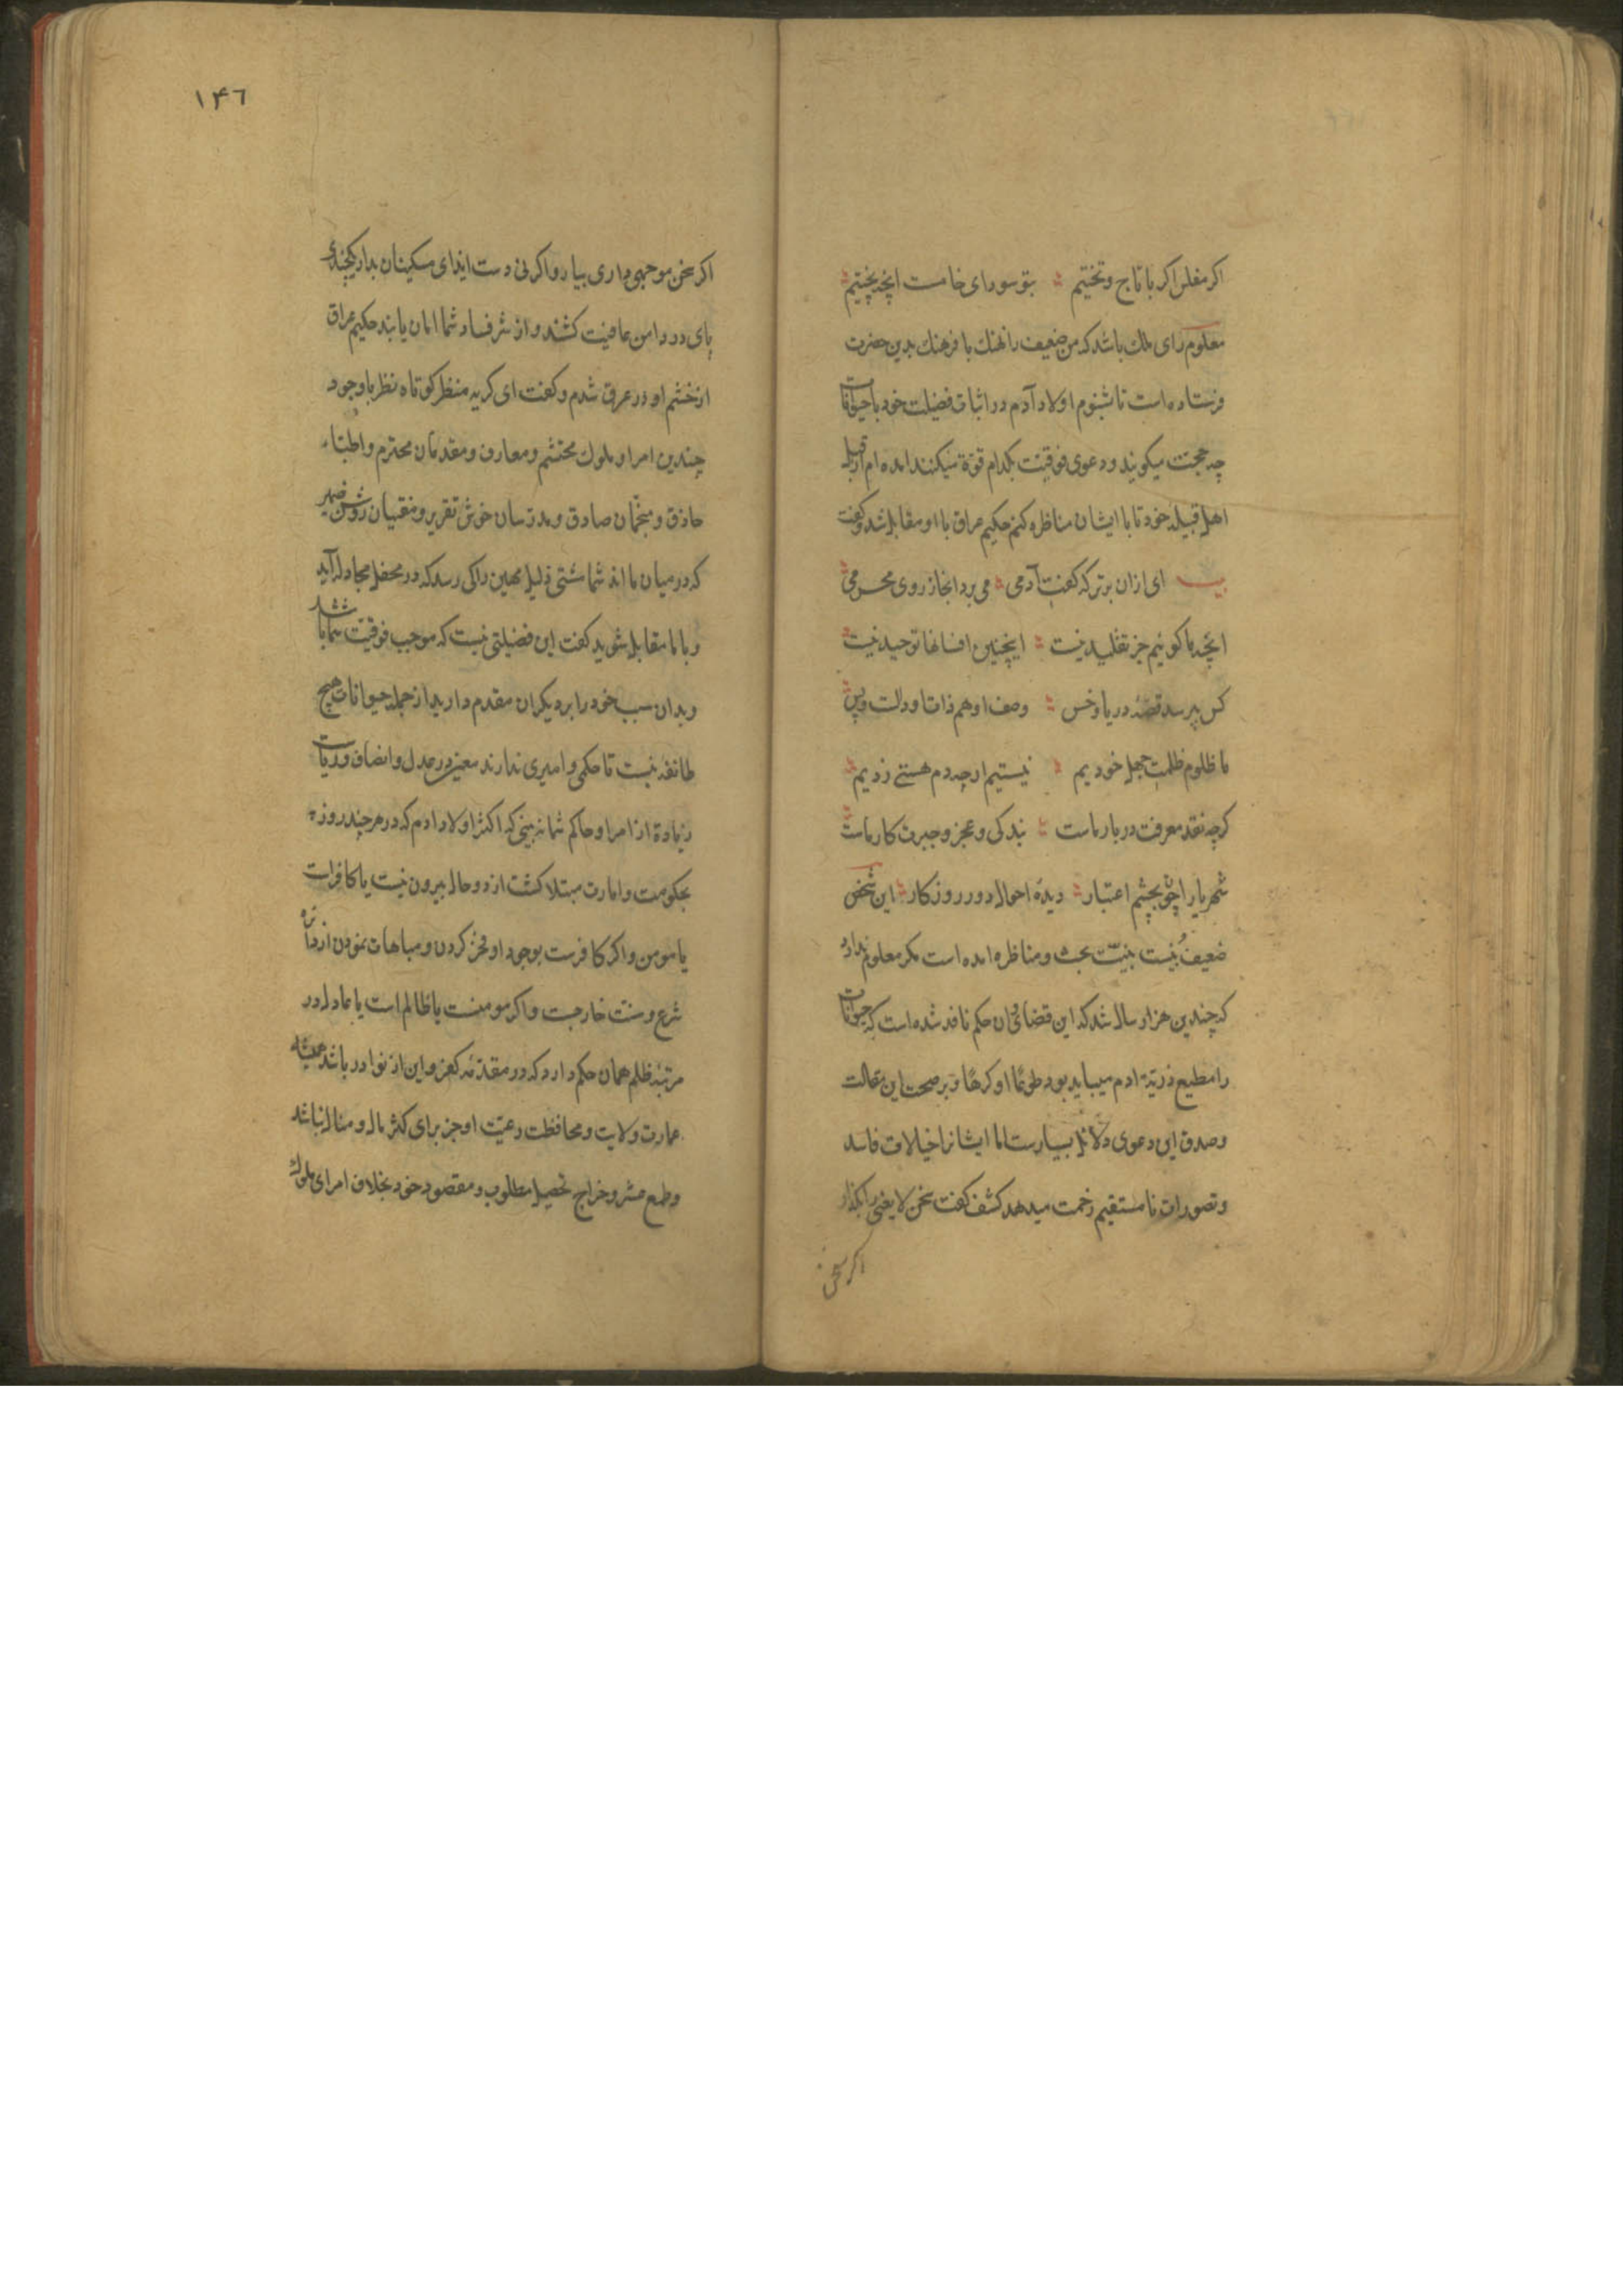 اکر مفلس اکر با تاج و تختیم بتو سودای خامست انچه پختیم
معلوم رای ملک باشد که من ضعیف را نهنك با فرهنك بدین حضرت
فرستاده است تا شنوم اولاد آدم در اثبات فضیلت خود با حیوانات
چه حجت میکویند و دعوی فوقیت بکدام قوة میکنند امده ام از قبل
اهل قبیله خود تا با ایشان مناظره کنم حکیم عراق با او مقابل شد و کفت
بیت ای ازان برتر که کفت آدمی می برد انجاز روی محرمی
انچه ما کوئیم جز تقلید نیست اینچنین افسانها توحید نیست
کس نپرسد قصهٔ دریا و خس وصف او هم ذات اودلت و پس
ما ظلوم ظلمت جهل خودیم نیستیم ارچه دم هستی زدیم
کرچه نقد معرفت دربار ماست بندکی و عجز و حیرت کار ماست
شهریارا چون بچشم اعتبار دیدهٔ احوال دور روزکار این شخص
ضعیف بنیت بنیّت بحث و مناظره امده است مکر معلوم ندارد
که چندین هزار سال شد که این قضای و ان حکم نافد شده است که حیوانات
را مطیع ذریّة ادم میباید بود طوعًا او کرهًا و بر صحت این مقالت
و صدق این دعوی دلائل بسیارست اما ایشانرا خیالات فاسد
و تصورات نا مستقیم زحمت میدهد کشف کفت سخن لا یعنی را بکذار
اکر سخن
١۴٦
اکر سخن موجهی داری بیار و اکر نی دست ایذای مسکینان بدار یکچندی
پای در دامن عافیت کشند و از شر فساد شما امان یابند حکیم عراق
از خشم او در عرق شدم و کفت ای کریه منظر کوتاه نظر با وجود
چندین امرا و ملوك محتشم و معارف و مقدمان محترم و اطباء
حاذق و منجّمان صادق و مدرسان خوش تقریر و مفتیان روشن ضمیر
که در میان ما اند شما مشتی ذلیل مهین را کی رسد که در محفل مجادله آید
و با ما مقابل شوید کفت این فضیلتی نیست که موجب فوقیّت شما باشد
و بدان سبب خود را بر دیکران مقدم دارید از جمله حیوانات هیچ
طائفه نیست تا حکمی و امیری ندارند معین در عدل و انصاف و دیانت
زیادة از امرا و حاکم شما نه بینی که اکثر اولاد ادم که در هر چند روزه
بحکومت و امارت مبتلا کشت از دو حال بیرون نیست یا کافرات
یا مومن و اکر کافرست بوجود او فخر کردن و مباهات نمودن از دائره
شرع و سنت خارجست و اکر مومنست یا ظالم است یا عادل در
مرتبه ظلم همان حکم دارد که در مقدمه کفر و این از نوادر باشد همیشه
عمارت ولایت و محافظت رعیّت او جز برای کثر مال و منال نباشد
و طمع عشر و خراج تحصیل مطلوب و مقصود خود بخلاف امرای ملوك